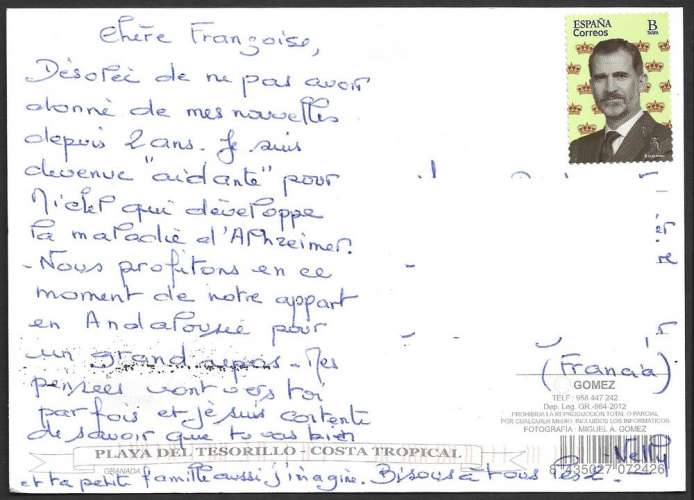 Chère Françoise,
Désolée de ne pas avoir
donné de mes nouvelles
depuis 2 ans. Je suis
devenue "aidante" pour
Michel qui développe
la maladie d'Alhzeimer.
- Nous profitons en ce
moment de notre appart
en Andalousie pour
un grand repos. Mes
pensées vont vers toi
parfois et je suis contente
de savoir que tu vas bien
et ta petite famille aussi j'imagine. Bisous à tous les 2. - Nelly
ESPAÑA
Correos
B
TARIFA
(Francia)
GOMEZ
TELF: 958 447 242
Dep. Leg. GR.-564-2012
PROHIBIDA LA REPRODUCCION TOTAL O PARCIAL
POR CUALQUIER MEDIO INCLUIDOS LOS INFORMATICOS
FOTOGRAFIA - MIGUEL A. GOMEZ
PLAYA DEL TESORILLO - COSTA TROPICAL
GRANADA
8 435027 072426